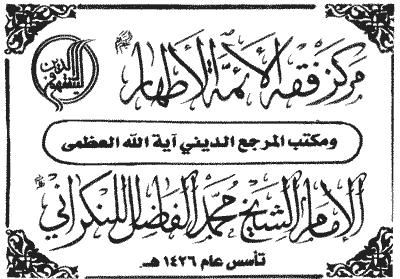 مركز فقه الأئمة الأطهار
ومكتب المرجع الديني آية الله العظمى
الإمام الشيخ محمد الفاضل اللنكراني
تأسس عام ١٤٢٦ هـ